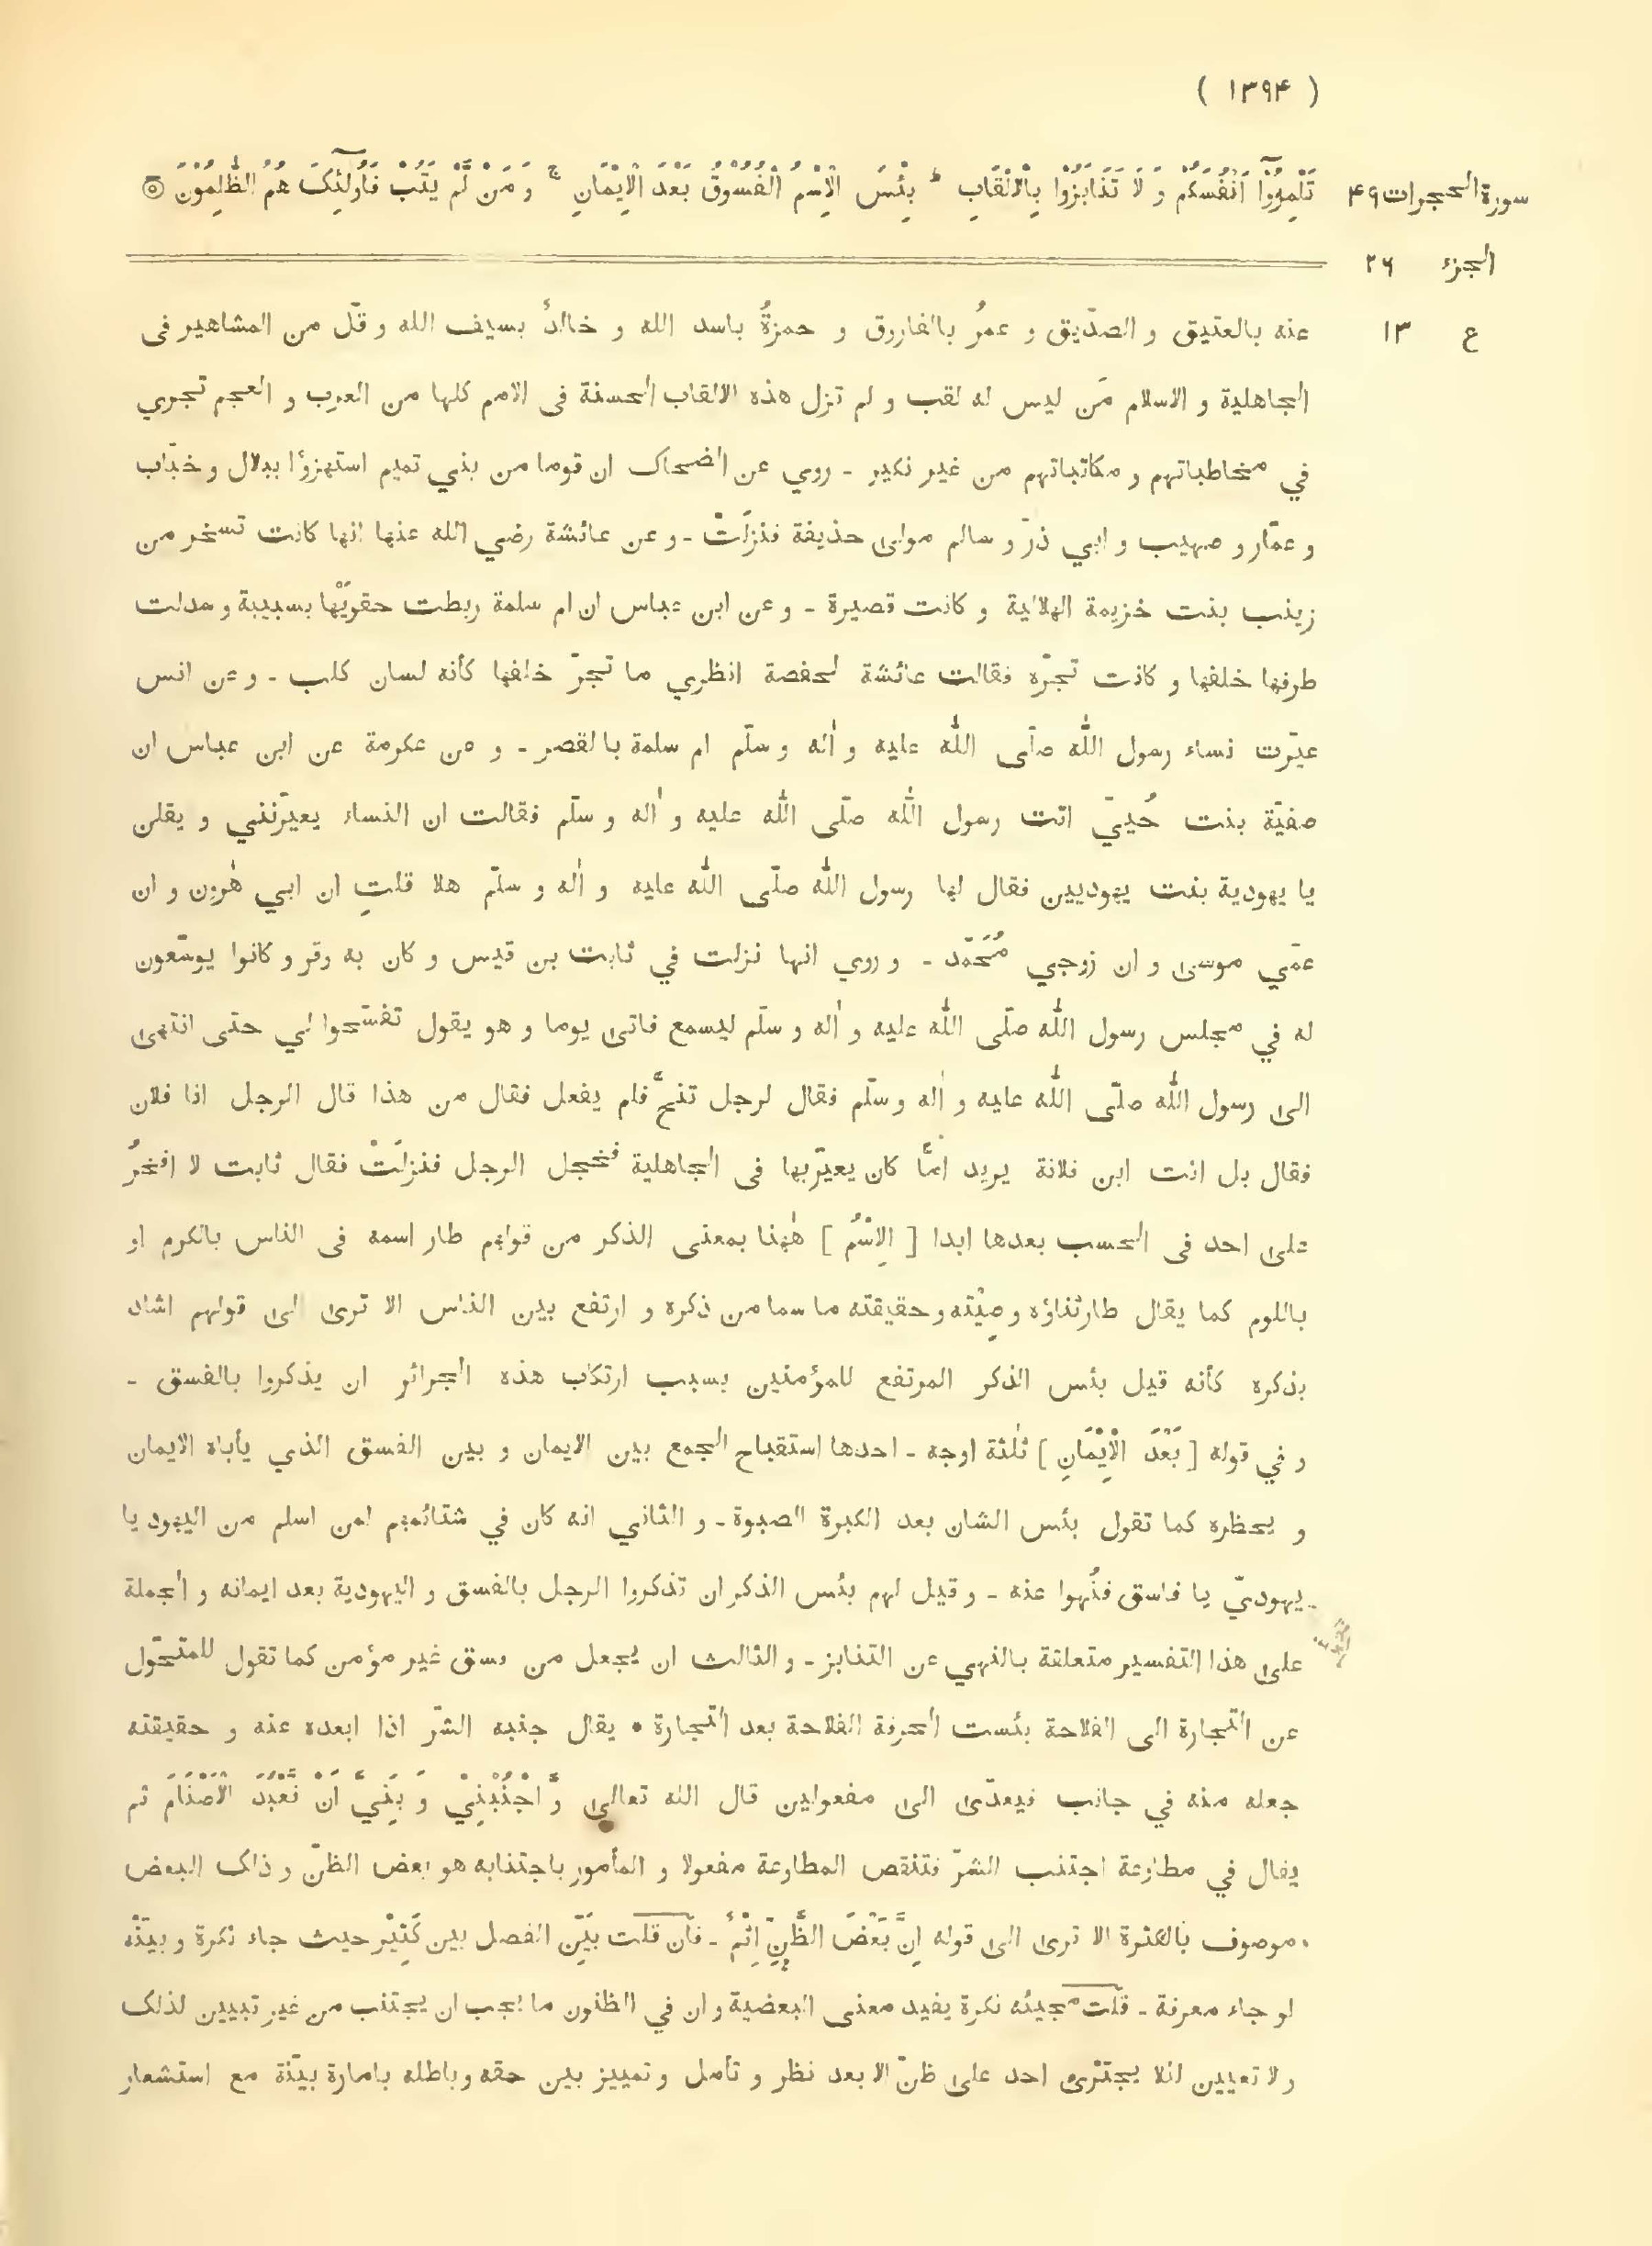 ( ١٣٩۴ )
سورة الحجرات ۴٩
تَلْمِزُوْٓا اَنْفُسَكُمْ وَ لَا تَنَابَزُوْا بِالْاَلْقَابِ ط بِئْسَ الْاِسْمُ الْفُسُوْقُ بَعْدَ الْاِيْمَانِ ج وَ مَنْ لَّمْ يَتُبْ فَاُولٰٓئِكَ هُمُ الظّٰلِمُوْنَ
الجزء ٢٦
ع ١٣
عنه بالعتيق و الصدّيق و عمرُ بالفاروق و حمزةُ باسد الله و خالدُ بسيف الله و قلّ من المشاهير فى
الجاهلية و الاسلام مَن ليس له لقب و لم تزل هذه الالقاب الحسنة فى الامم كلها من العرب و العجم تجري
في مخاطباتهم و مكاتباتهم من غير نكير - روي عن الضحاك ان قوما من بني تميم استهزؤا ببلال و خبّاب
و عمّار و صهيب و ابي ذرّ و سالم مولى حذيفة فنزلَتْ - و عن عائشة رضي الله عنها انها كانت تسخر من
زينب بنت خزيمة الهلالية و كانت قصيرة - و عن ابن عباس ان ام سلمة ربطت حقويْها بسبيبة و سدلت
طرفها خلفها و كانت تجرّه فقالت عائشة لحفصة انظري ما تجرّ خلفها كأنه لسان كلب - و عن انس
عيّرت نساء رسول اللّٰه صلّى اللّٰه عليه و اٰله و سلّم ام سلمة بالقصر - و عن عكرمة عن ابن عباس ان
صفيّة بنت حُييّ اتت رسول اللّٰه صلّى اللّٰه عليه و اٰله و سلّم فقالت ان النساء يعيّرنني و يقلن
يا يهودية بنت يهوديين فقال لها رسول اللّٰه صلّى اللّٰه عليه و اٰله و سلّم هلا قلتِ ان ابي هٰرون و ان
عمّي موسى و ان زوجي مُحَمّد - و روي انها نزلت في ثابت بن قيس و كان به وقر و كانوا يوسّعون
له في مجلس رسول اللّٰه صلّى اللّٰه عليه و اٰله و سلّم ليسمع فاتى يوما و هو يقول تفسّحوا لي حتى انتهى
الى رسول اللّٰه صلّى اللّٰه عليه و اٰله و سلّم فقال لرجل تنحَّ فلم يفعل فقال من هذا قال الرجل انا فلان
فقال بل انت ابن فلانة يريد امًّا كان يعيّر بها فى الجاهلية فخجل الرجل فنزلَتْ فقال ثابت لا افخرُ
على احد فى الحسب بعدها ابدا [ الْاِسْمُ ] هٰهنا بمعنى الذكر من قولهم طار اسمه فى الناس بالكرم او
باللوم كما يقال طار ثناؤه و صِيْته و حقيقته ما سما من ذكره و ارتفع بين الناس الا ترى الى قولهم اشاد
بذكره كأنه قيل بئس الذكر المرتفع للمؤمنين بسبب ارتكاب هذه الجرائر ان يذكروا بالفسق -
و في قوله [ بَعْدَ الْاِيْمَانِ ] ثلٰثة اوجه - احدها استقباح الجمع بين الايمان و بين الفسق الذي يأباه الايمان
و يحظره كما تقول بئس الشان بعد الكبرة الصبوة - و الثاني انه كان في شتائمهم لمن اسلم من اليهود يا
يهوديّ يا فاسق فنُهوا عنه - و قيل لهم بئس الذكر ان تذكروا الرجل بالفسق و اليهودية بعد ايمانه و الجملة
على هذا التفسير متعلقة بالنهي عن التنابز - و الثالث ان يجعل من فسق غير مؤمن كما تقول للمتحوّل
عن التجارة الى الفلاحة بئست الحرفة الفلاحة بعد التجارة • يقال جنبه الشرّ اذا ابعده عنه و حقيقته
جعله منه في جانب فيعدّى الى مفعولين قال الله تعالى وَّ اجْنُبْنِيْ وَ بَنِيَّ اَنْ نَّعْبُدَ الْاَصْنَامَ ثم
يقال في مطاوعة اجتنب الشرّ فتنقص المطاوعة مفعولا و المأمور باجتنابه هو بعض الظنّ و ذلك البعض
موصوف بالكثرة الا ترى الى قوله اِنَّ بَعْضَ الظَّنِّ اِثْمٌ - فان قلت بَيِّن الفصل بين كَثِيْر حيث جاء نكرة و بينه
لو جاء معرفة - قلت مجيئه نكرة يفيد معنى البعضية و ان في الظنون ما يجب ان يجتنب من غير تبيين لذلك
و لا تعيين لئلا يجترئ احد على ظنّ الا بعد نظر و تأمل و تمييز بين حقه و باطله بامارة بيّنة مع استشعار